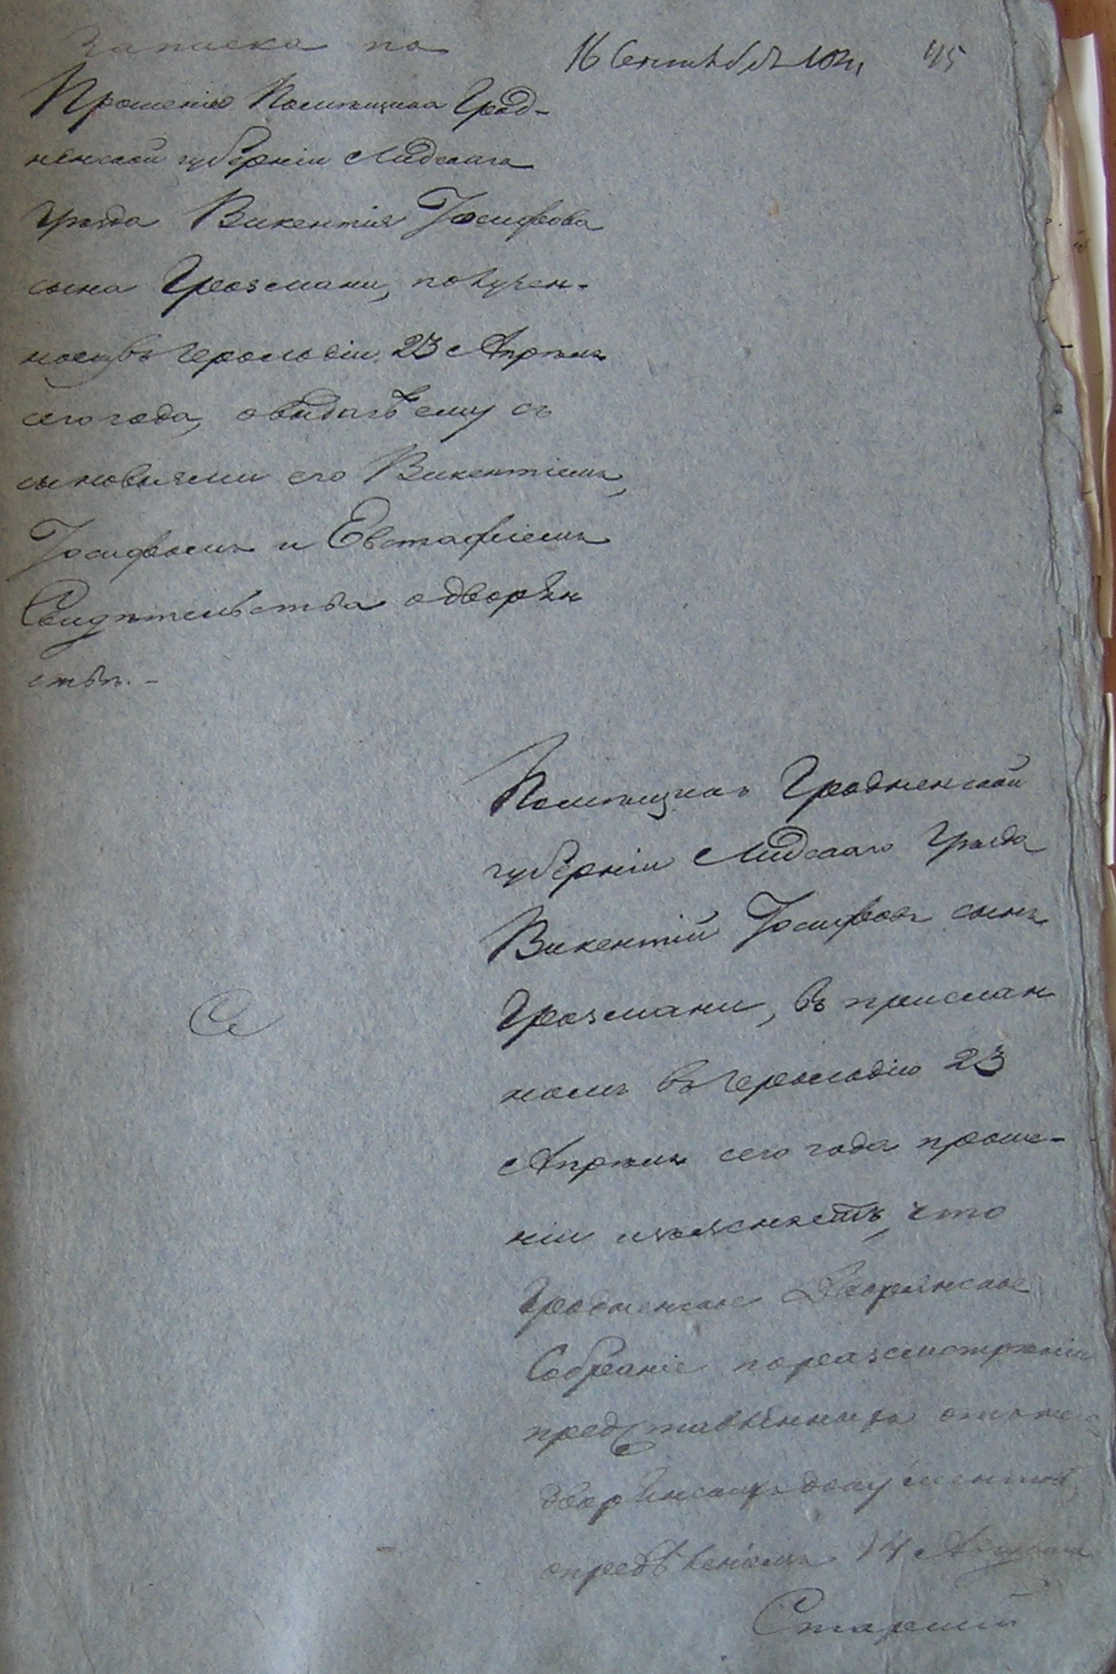 Записка по
16 Сентября 45
Прошенію Помѣщика Грод-
ненской губерніи Лидскаго
Уѣзда Викентія Іосифова
сына Грозмани, получен-
ному въ Герольдіи 23 Апрѣля
сего года, о выдачѣ ему съ
сыновьями его Викентіемъ,
Іосифомъ и Евстафіемъ
Свидѣтельства о дворян
ствѣ. –
Помѣщикъ Гродненской
губерніи Лидскаго Уѣзда
Викентій Іосифовъ сынъ
Грозмани, въ прислан
номъ въ Герольдію 23
Апрѣля сего года проше-
ніи изъясняетъ, что
Гродненское Дворянское
Собраніе по разсмотрѣніи
представленныхъ
дворянскихъ документовъ,
опредѣленіемъ 14
Старшій